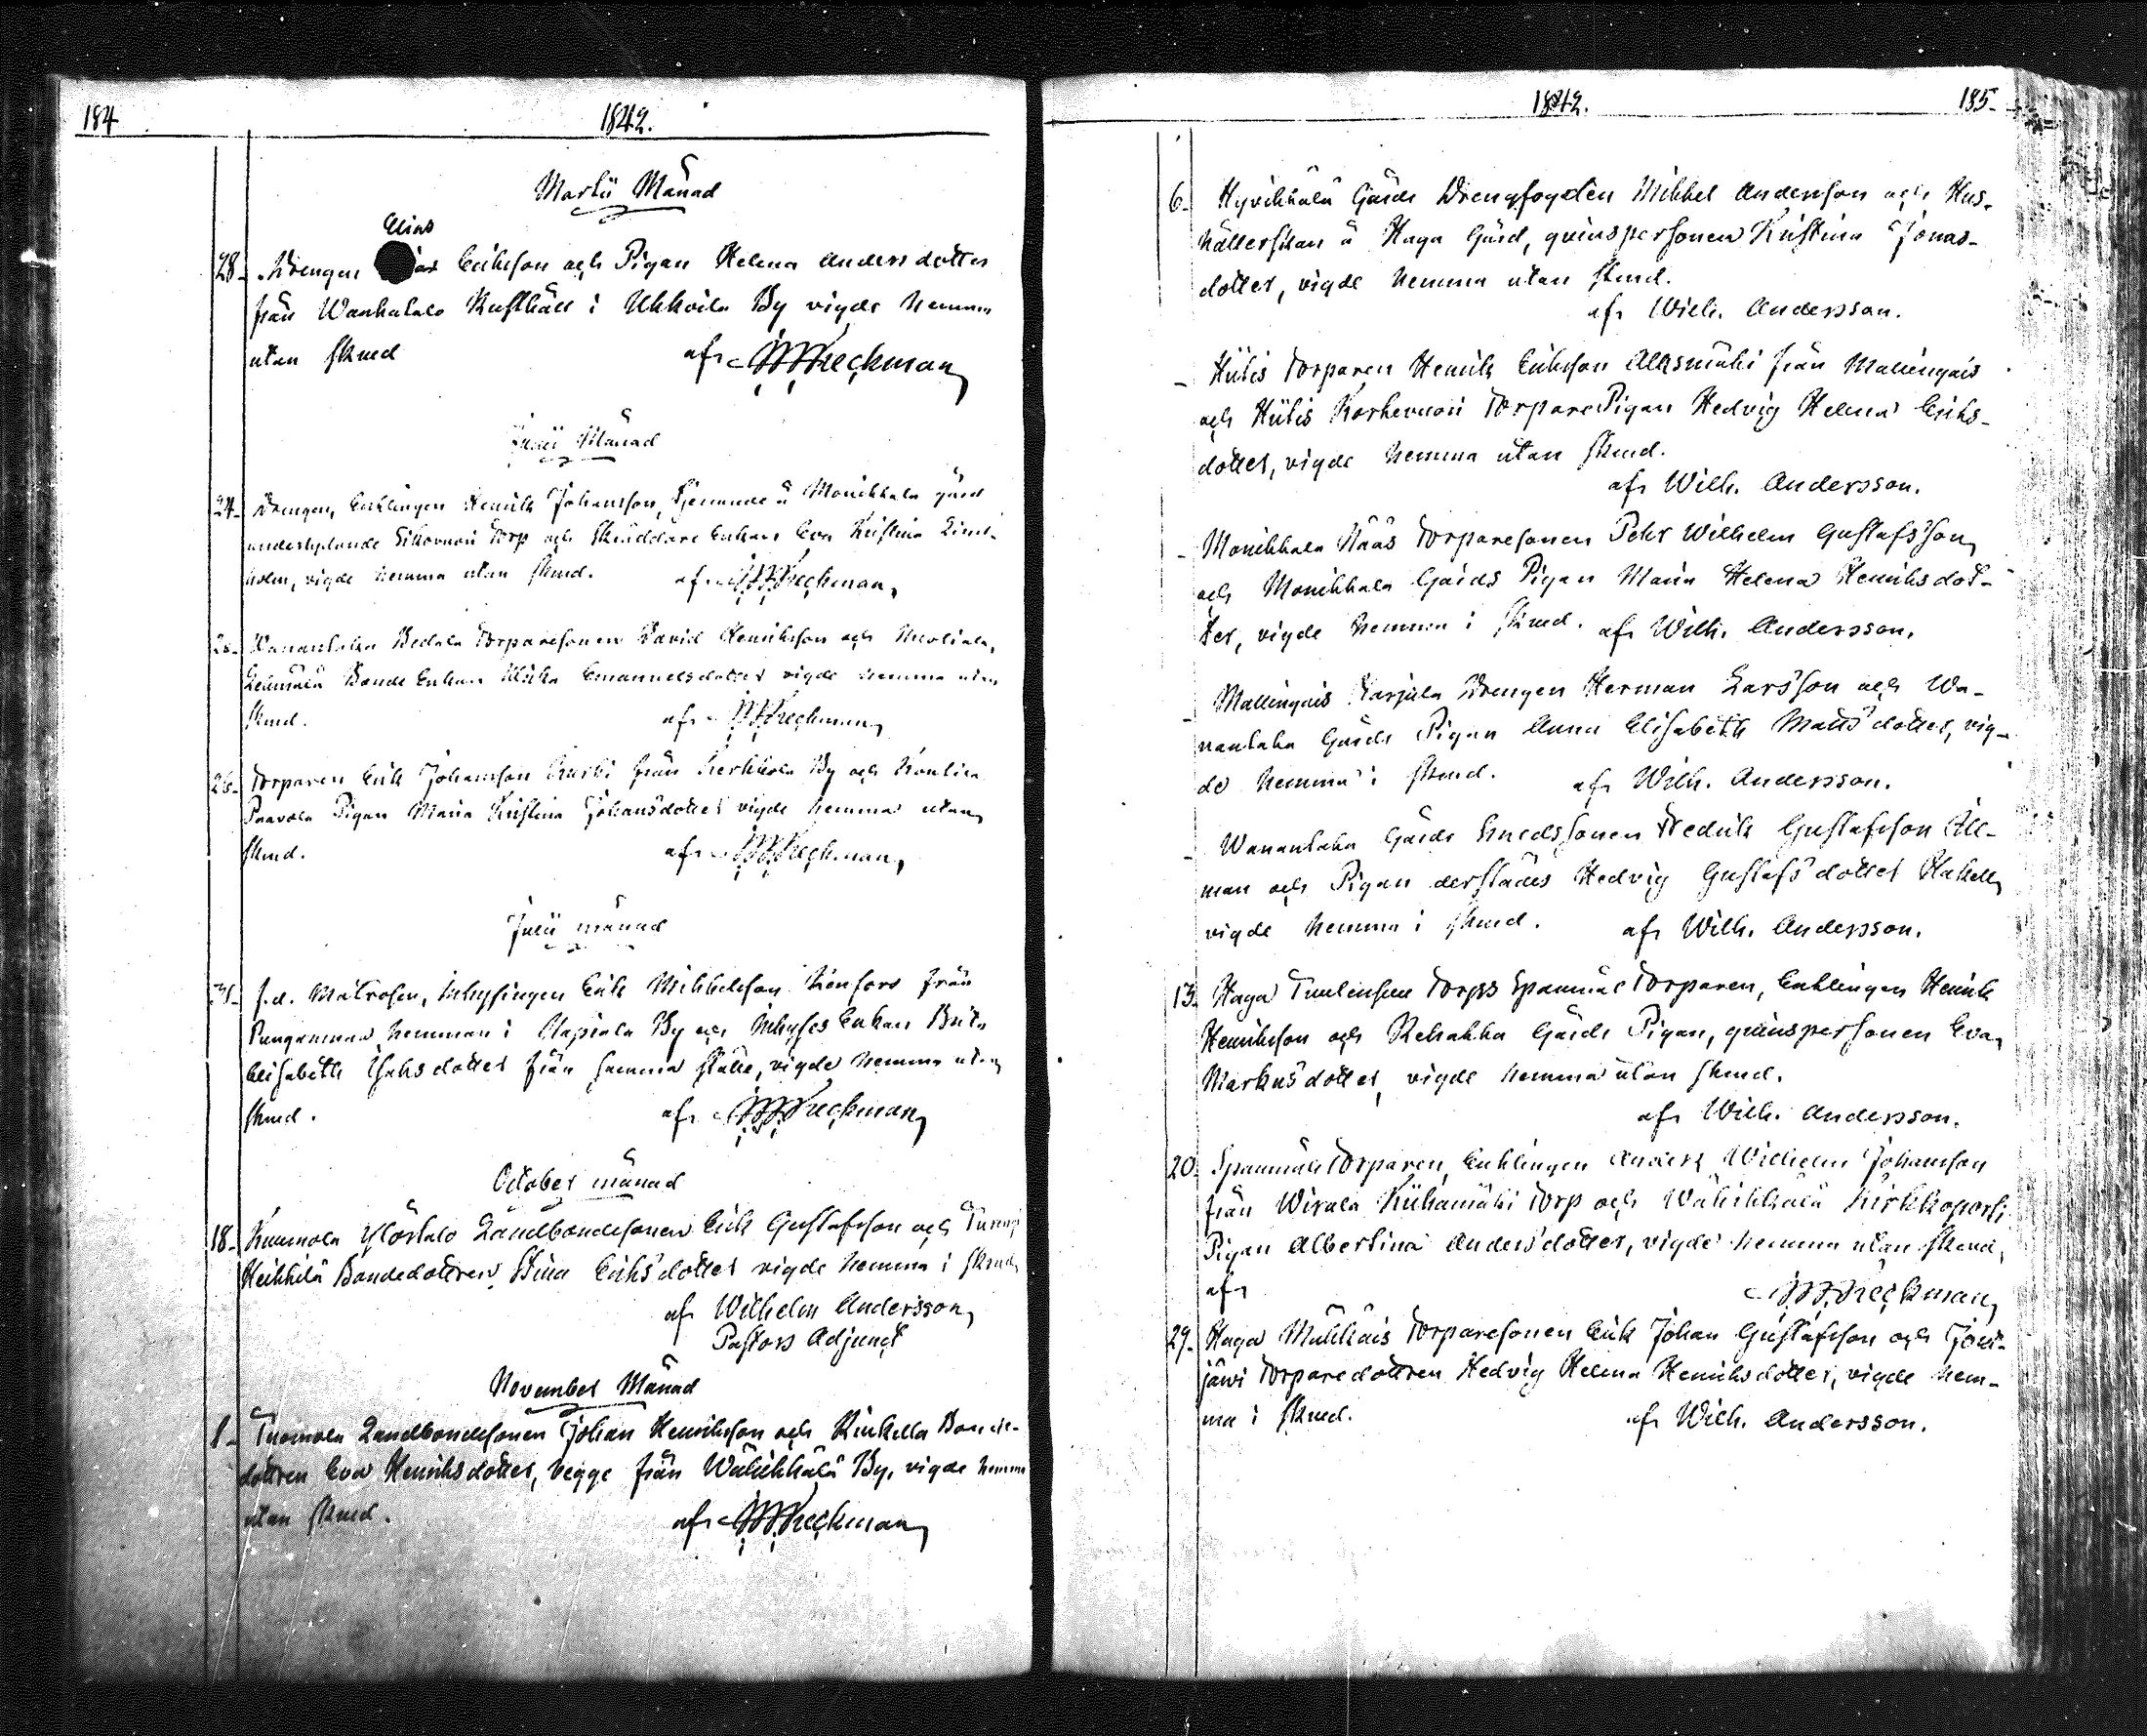 184
1842.
Martii Månad
Elias
28. Drengen Erikson och Pigan Helena Andersdotter
från Wanhatalo Rusthåll i Uhkoila By vigde hemma
utan skrud af Freckman
Junii Månad
24. Drengen, Enklingen Henrik Johansson, tjenande å Monikkala gård
underlydande torp och Skräddare Enkan Eva Kristina Lind-
holm, vigde hemma utan skrud. af Freckman
Wanantaka torparesonen David Henrikson och
Bonde Enkan Ulrika Emanuelsdotter vigde hemma utan
skrud. af Freckman
26. Torparen Erik Johansson från Kerkkola By och
Paavola Pigan Maria Kristina Johansdotter vigde hemma utan
skrud. af Freckman
Julii månad
f.d. Matrosen, Inhysingen Erik Mikkelsson från
hemman i By och Inhyses Enkan Brita
Elisabeth Isaksdotter från samma ställe, vigde hemma utan
skrud. af Freckman
October månad
18. Kuumola Ylöstalo Landbondesonen Erik Gustafsson och
Heikkilä Bondedottren Stina Eriksdotter vigde hemma i skrud
af Wilhelm Andersson,
Pastors Adjunct
November Månad
1. Tuomola Landbondesonen Johan Henrikson och Rinkella Bonde-
dottren Eva Henriksdotter, begge från Wähikkälä By, vigde hemma
utan skrud. af Freckman
1842.
185.
6. Hyvikkälä Gårds Drengfogden Mikkel Andersson och Hus-
hållerskan å Haga Gård, qvinspersonen Kristina Jonas-
dotter, vigde hemma utan skrud.
af Wilh. Andersson.
- Hütis Torparen Henrik Erikson Alhsmäki från Mallinguis
och Hütis Torpare Pigan Hedvig Helena Eriks-
dotter, vigde hemma utan skrud.
af Wilh. Andersson.
- Monikkala Nääs Torparesonen Petr Wilhelm Gustafsson
och Monikkala Gårds Pigan Maria Helena Henriksdot-
ter, vigde hemma i skrud. af Wilh. Andersson.
- Mallinguis Harjula Drengen Herman Larsson och Wa-
nantaka Gårds Pigan Anna Elisabeth Mattsdotter, vig-
de hemma i skrud. af Wilh. Andersson.
- Wanantaka Gårds Smedssonen Fredrik Gustafsson Äll-
man och Pigan derstädes Hedvig Gustafsdotter
vigde hemma i skrud. af Wilh. Andersson.
13. Haga Torps Spanmåls Torparen, Enklingen Henrik
Henrikson och Rehakka Gårds Pigan, qvinspersonen Eva
Markusdotter, vigde hemma utan skrud.
af Wilh. Andersson.
20. Spanmåls Torparen, Enklingen Anders Wilhelm Johansson
från Wirala Kühamäki Torp och Wähikkälä Kirkkoporti
Pigan Albertina Andersdotter, vigde hemma utan skrud,
af Freckman
29. Haga Mükkäis Torparesonen Erik Johan Gustafsson och
järvi Torparedottren Hedvig Helena Henriksdotter, vigde hem-
ma i skrud. af Wilh. Andersson.